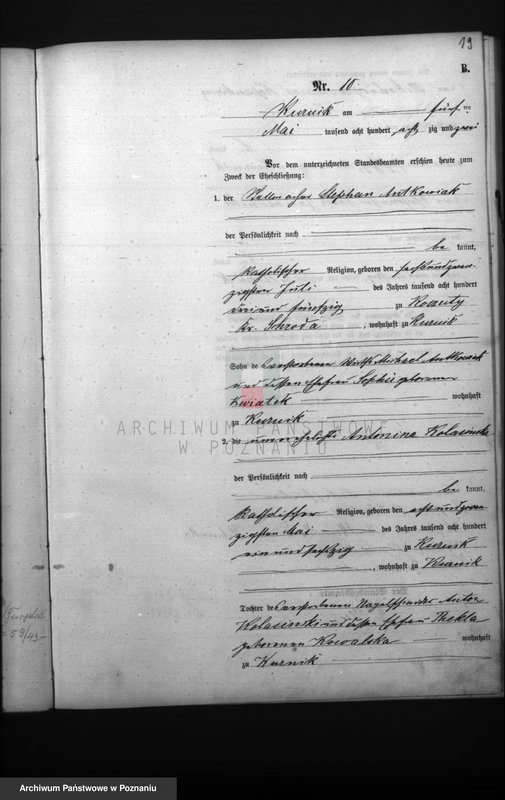 19
B.
Nr. 10
Kurnik am fünf ten
Mai tausend acht hundert acht zig und zwei
Vor dem unterzeichneten Standesbeamten erschien heute zum
Zweck der Eheschließung:
1. der Stephan Antkowiak
der Persönlichkeit nach
be kannt,
katholischer Religion, geboren den sechsundzwan-
zigsten Juli des Jahres tausend acht hundert
drei und fünfzig zu
Kr. Schroda, wohnhaft zu Kurnik
Sohn de s verstorbenen Wirths Michael Antkowiak
und dessen Ehefrau Sophie geborenen
Kwiatek wohnhaft
zu Kurnik
2. die unverehelichte Antonina Kolasinska
der Persönlichkeit nach
be kannt,
katholischer Religion, geboren den achtundzwan-
zigsten Mai des Jahres tausend acht hundert
ein und sechszig zu Kurnik
, wohnhaft zu Kurnik
Tochter de s verstorbenen Nagelschmieds Anton
Kolasinski und dessen Ehefrau Thekla
geborenen Kowalska wohnhaft
zu Kurnik
59/43
ARCHIWUM PAŃSTWOWE
W POZNANIU
Archiwum Państwowe w Poznaniu